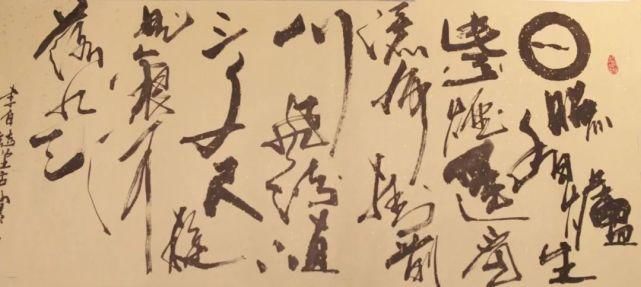 日照香爐生
紫煙遙看
瀑布掛前
川飛流直下
三千尺疑
是銀河
落九天
李白